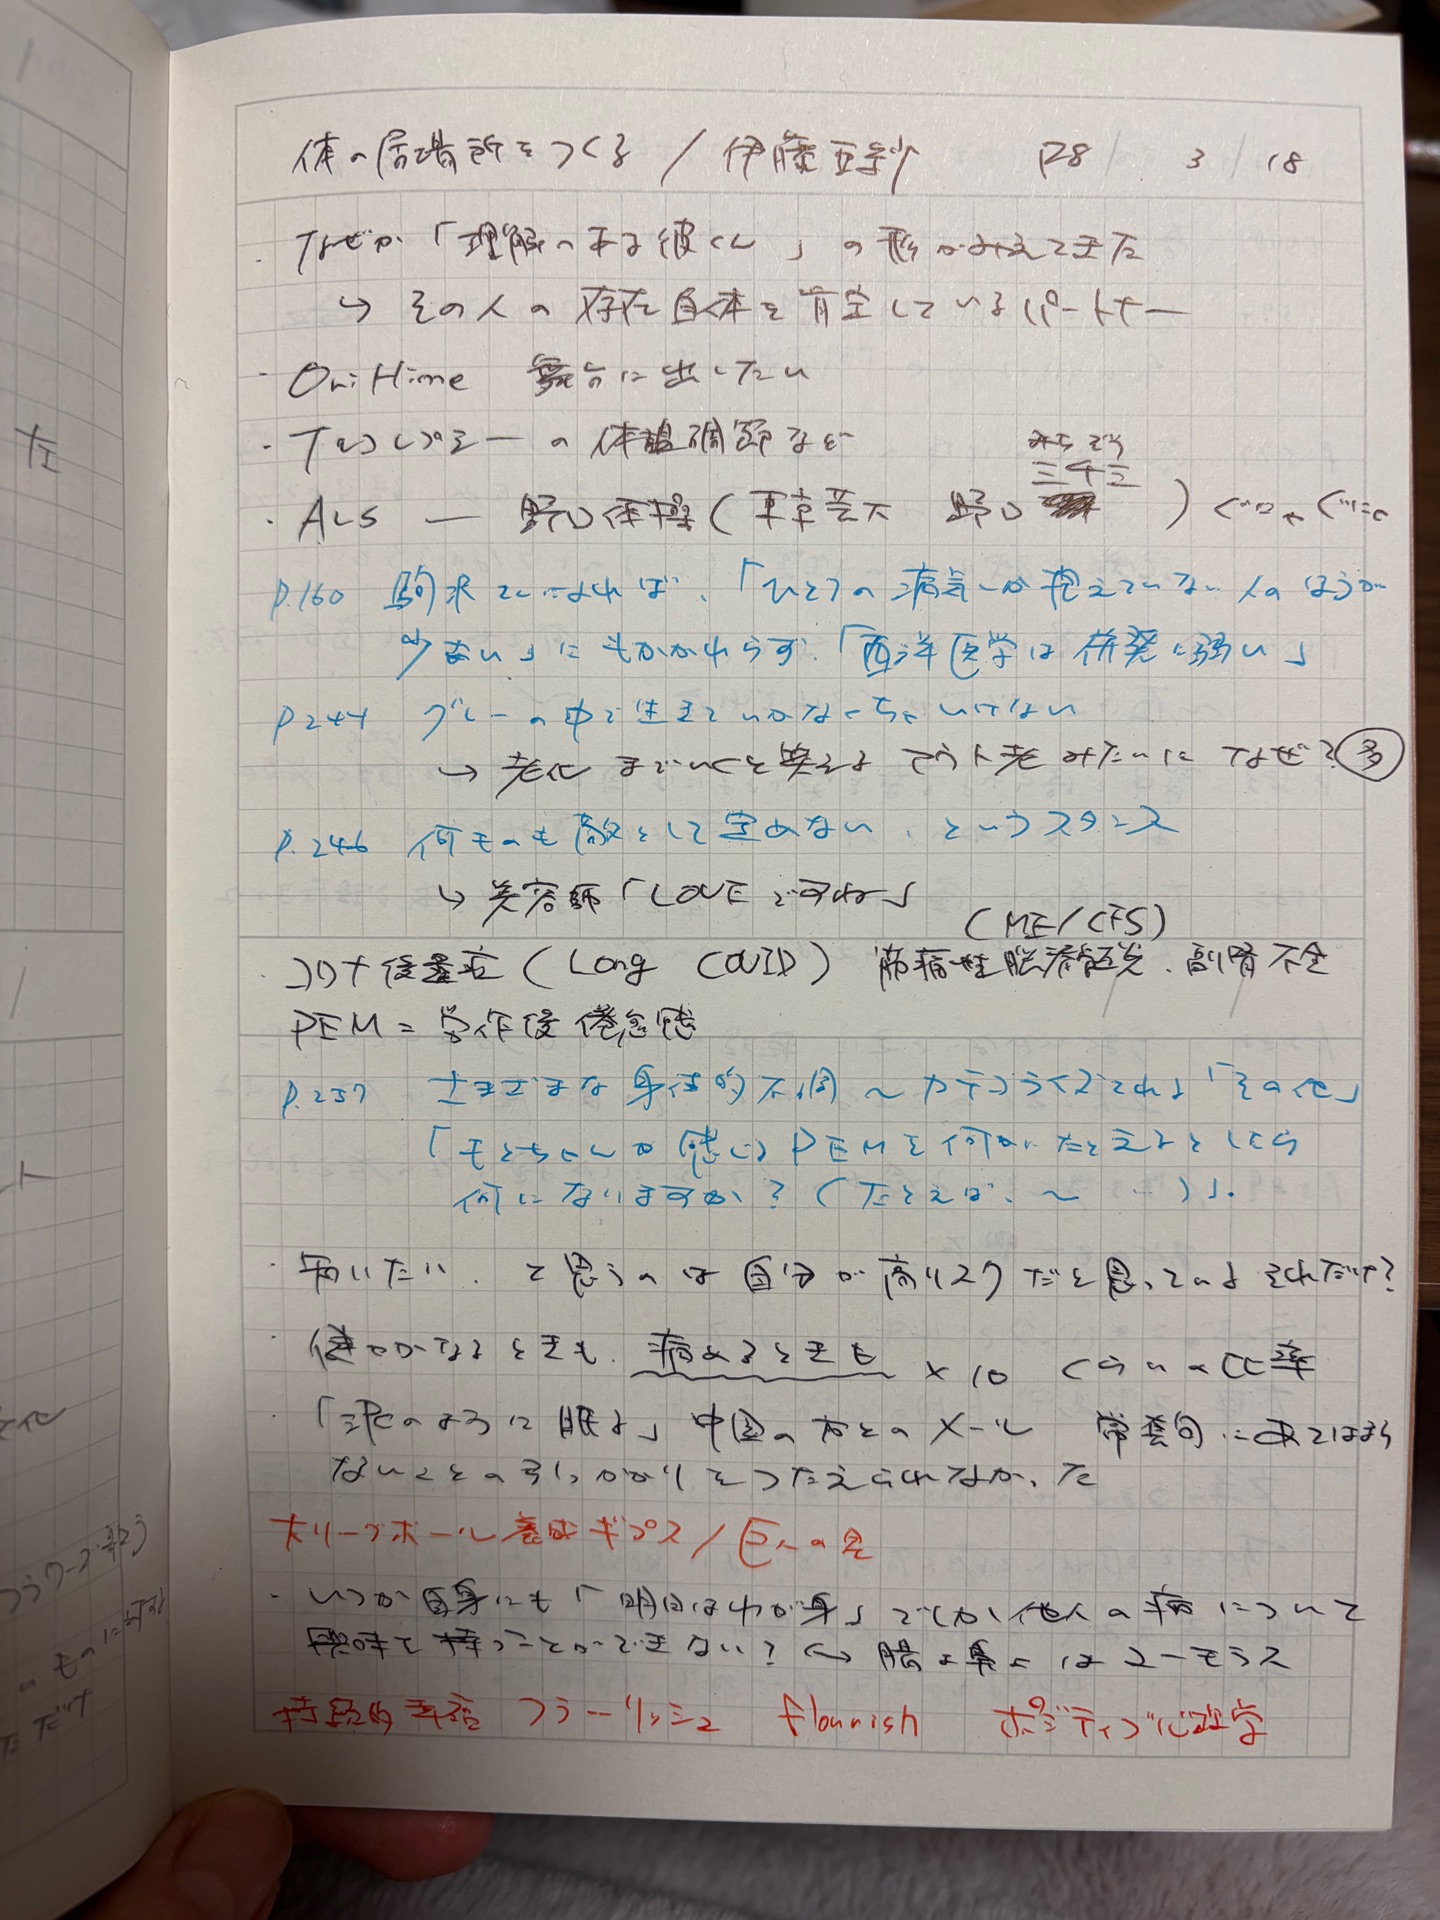 体の居場所をつくる / 伊藤亜紗 P8 / 3 / 18
・なぜか「理解のある彼くん」の形がみえてきた
↳ その人の存在自体を肯定しているパートナー
・OriHime 舞台に出したい
・ナルコレプシーの体温調節など
みちぞう
・ALS — 野口体操(東京芸大 野口 三千三) ぐにゃぐにゃ
P.160 駒沢さんによれば、「ひとつの病気しか抱えていない人のほうが
少ない」にもかかわらず、「西洋医学は併発に弱い」
P.244 グレーの中で生きていかなくちゃいけない
↳ 老化 までいくと笑える アウト老みたいに なぜ? 多
P.246 何ものも敵として定めない、というスタンス
↳ 美容師「LOVEですね」
(ME/CFS)
・コロナ後遺症 (Long COVID) 筋痛性脳脊髄炎、副腎不全
PEM = 労作後倦怠感
P.257 さまざまな身体的不調 〜 カテゴライズされる「その他」
「もとちゃんが感じるPEMを何かにたとえるとしたら
何になりますか?(たとえば、〜 …)」.
・病いたい、と思うのは自分が高リスクだと思っているそれだけ?
・健やかなるときも、病めるときも × 10 くらいの比率
・「泥のように眠る」中国の方とのメール 常套句にあてはまら
ないことの引っかかりをつたえられなかった
大リーグボール養成ギプス/巨人の星
・いつか自身にも「明日はわが身」でしか他人の病について
興味を持つことができない? ↔ 腸と鼻はユーモラス
持続的幸福 フラーリッシュ flourish ポジティブ心理学